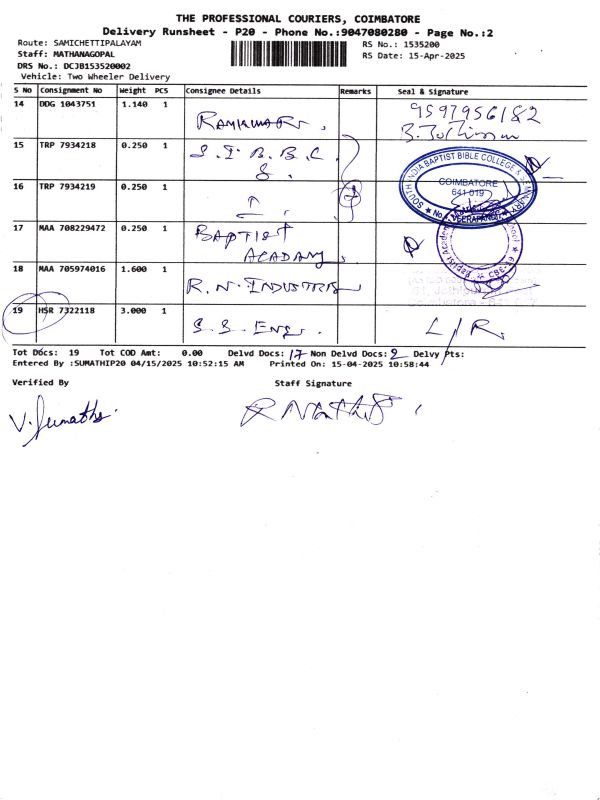 THE PROFESSIONAL COURIERS, COIMBATORE
Delivery Runsheet - P20 - Phone No.:9047080280 - Page No.:2
Route: SAMICHETTIPALAYAM
Staff: MATHANAGOPAL
DRS No.: DCJB153520002
Vehicle: Two Wheeler Delivery
RS No.: 1535200
RS Date: 15-Apr-2025
S No Consignment No Weight PCS Consignee Details Remarks Seal & Signature
14 DDG 1043751 1.140 1 9597956182
15 TRP 7934218 0.250 1 S.I.B.B.C.
SOUTH INDIA BAPTIST BIBLE COLLEGE &
COIMBATORE
641 019
16 TRP 7934219 0.250 1
17 MAA 708229472 0.250 1 BAPTIST
ACADAMY
18 MAA 705974016 1.600 1 R.N. INDUSTRIS
19 HSR 7322118 3.000 1 S.S. ENG. L/R.
Tot Docs: 19 Tot COD Amt: 0.00 Delvd Docs: 17 Non Delvd Docs: 2 Delvy Pts:
Entered By :SUMATHIP20 04/15/2025 10:52:15 AM Printed On: 15-04-2025 10:58:44
Verified By Staff Signature
V. Sumathi.